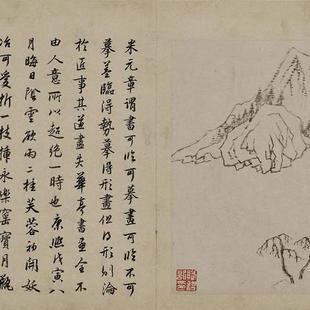 米元章謂書可臨可摹畫可臨不可
摹蓋臨得勢摹得形畫但得形則淪
於匠事其道盡失華亭書画全不
由人意所以超絕一時也康熙戊寅八
月晦日陰雲欲雨二桂芙蓉初開妖
冶可愛折一枝插永樂窰寶月瓶